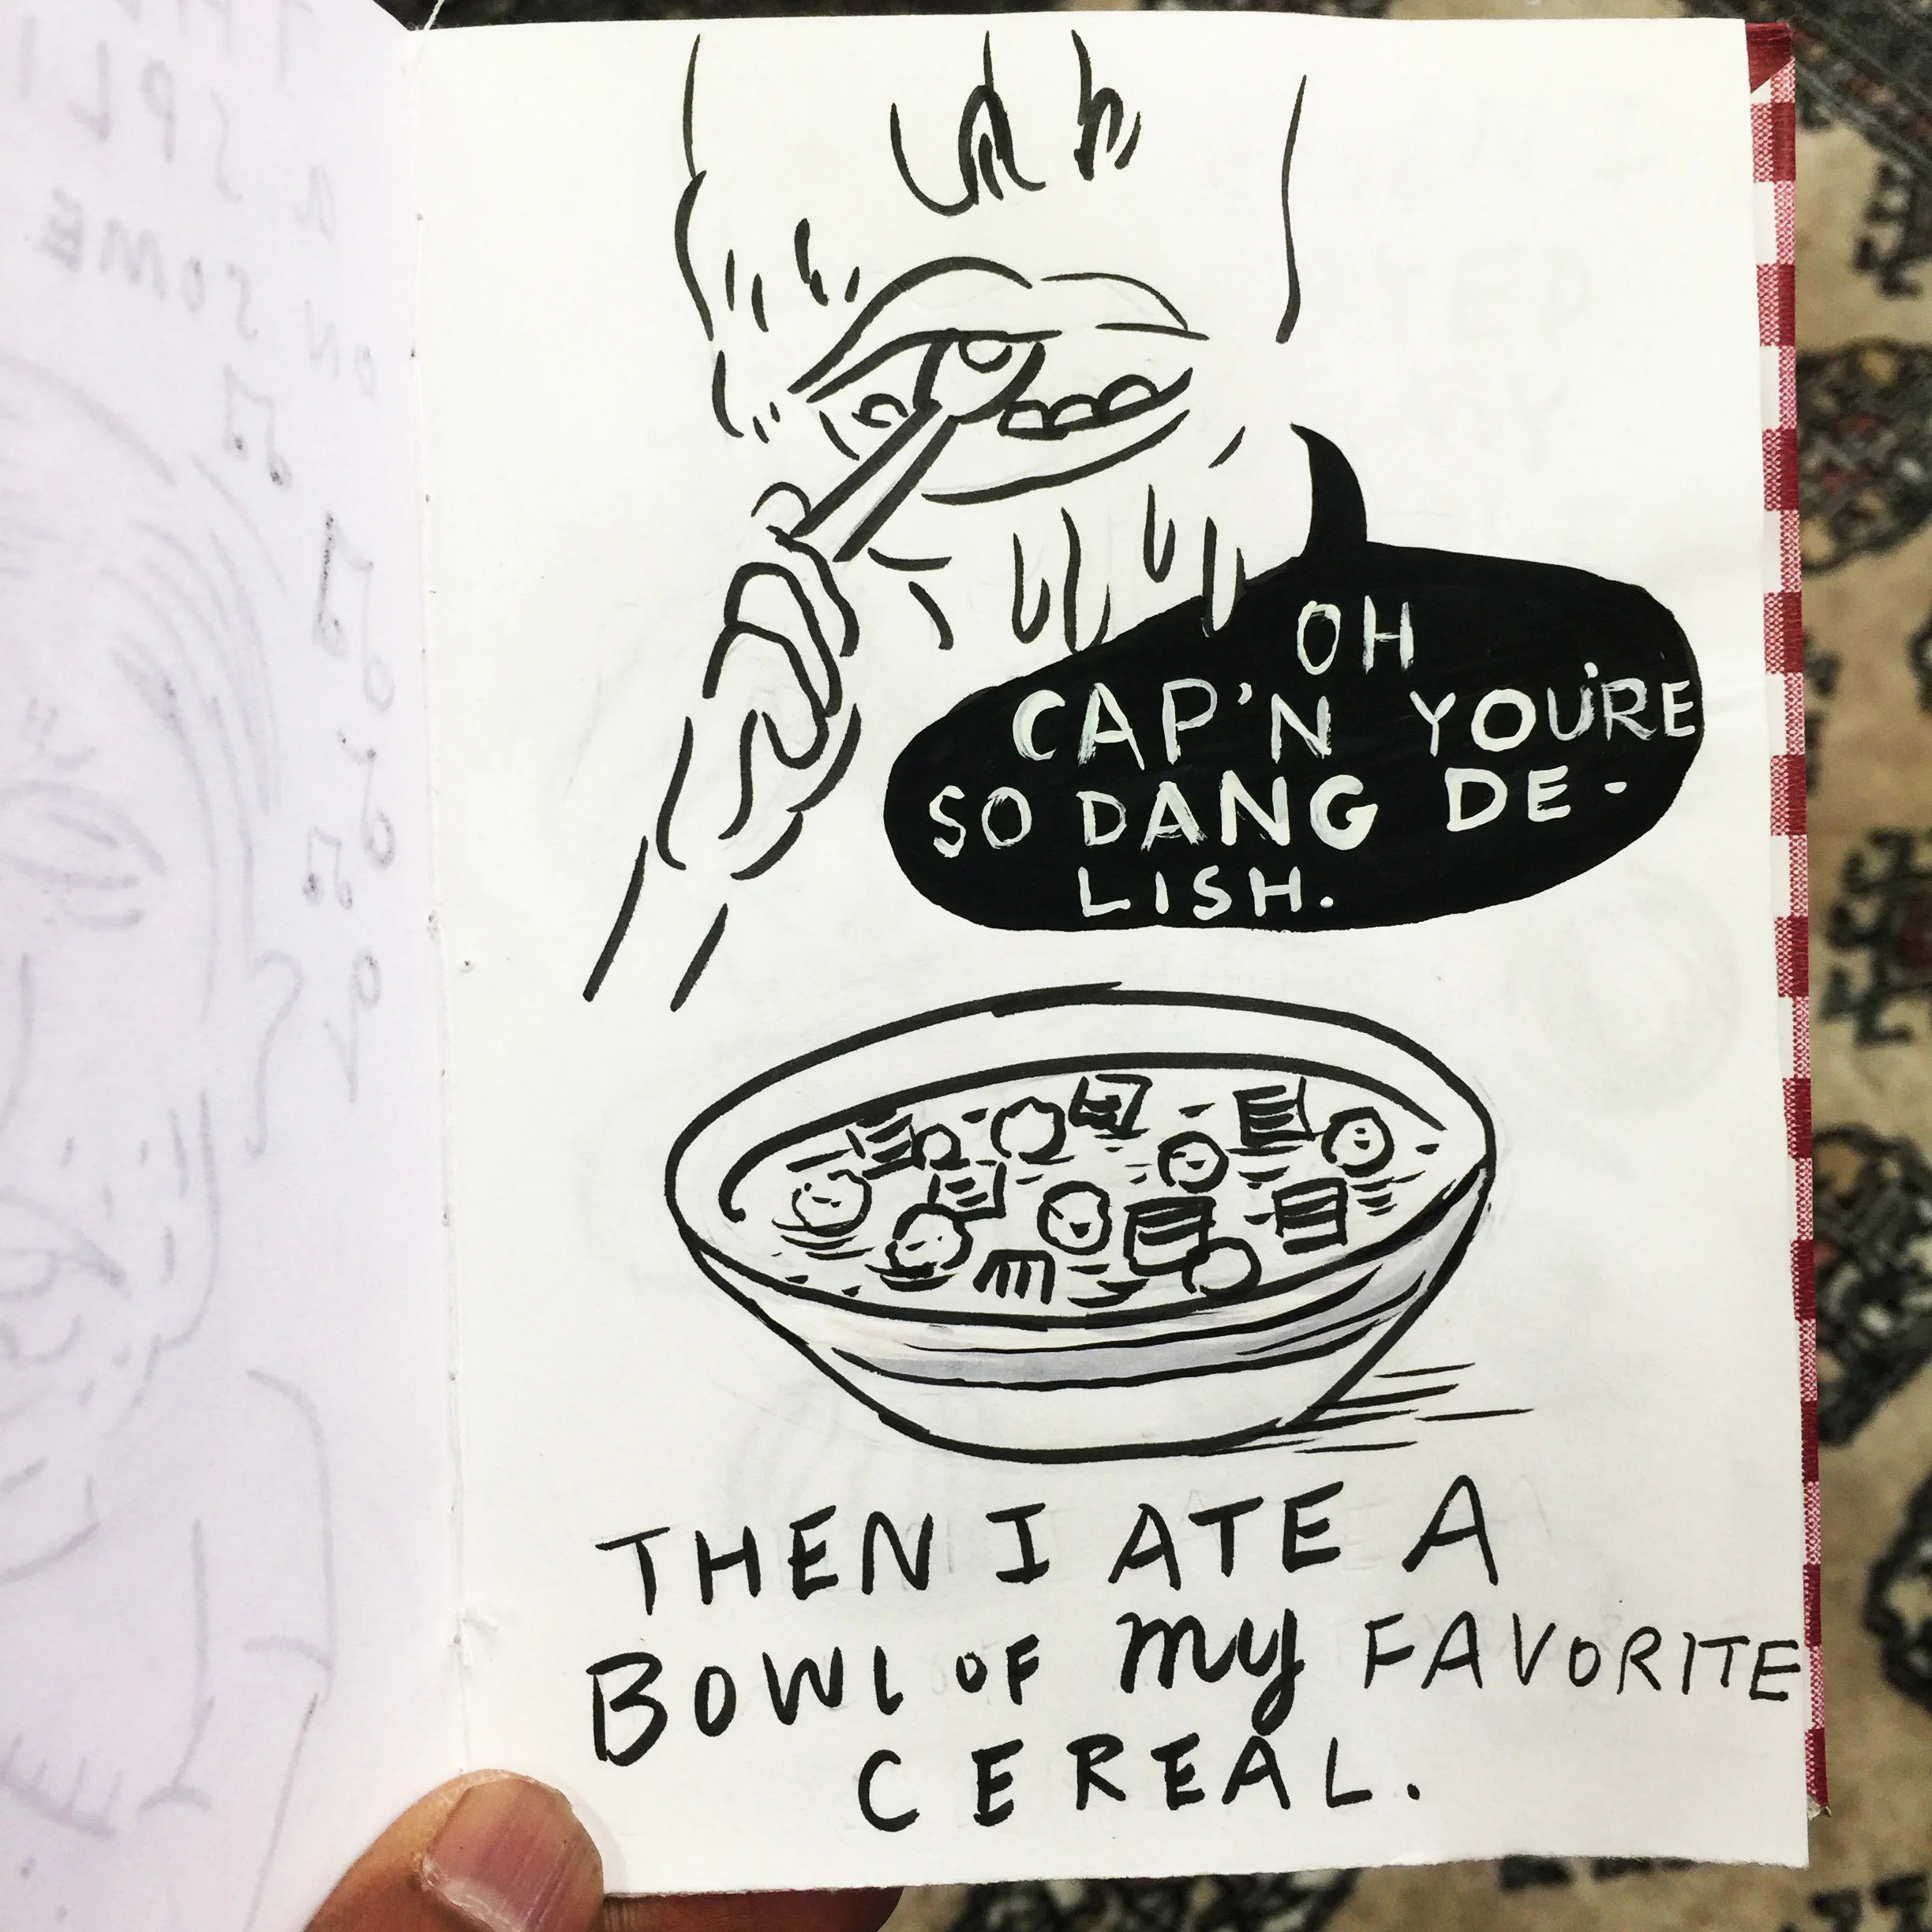 OH
CAP'N YOU'RE
SO DANG DE-
LISH.
THEN I ATE A
BOWL OF my FAVORITE
CEREAL.